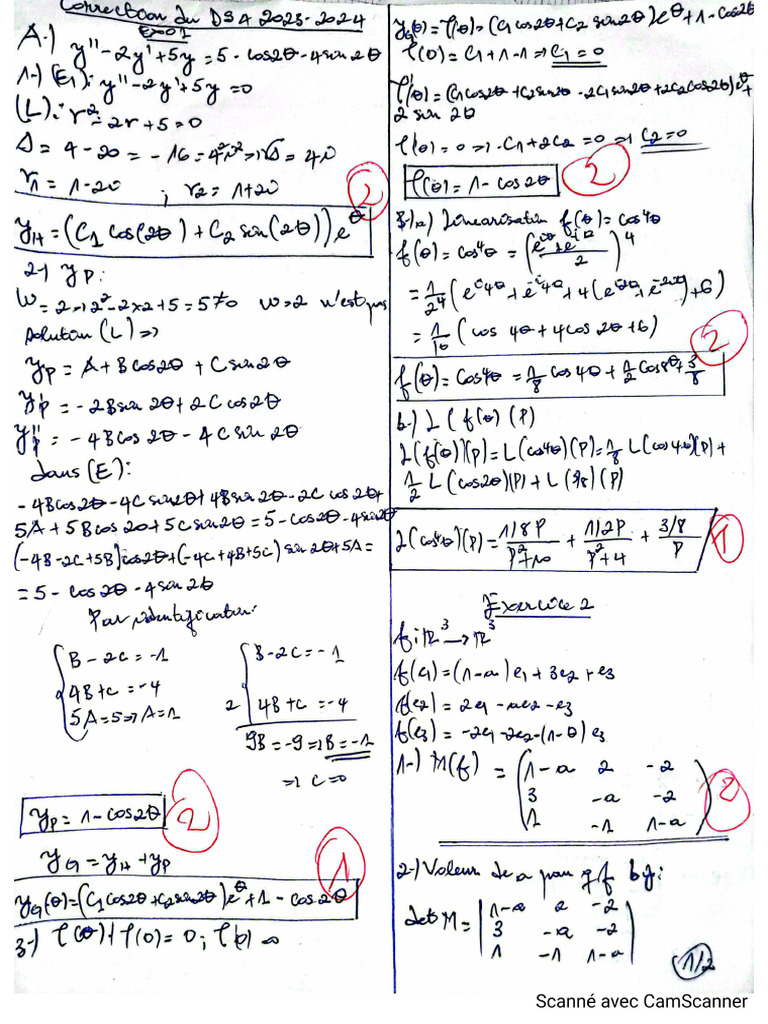 Correction du DS A 2023-2024
Exo1
A-) y'' - 2y' + 5y = 5 - cos2θ - 4sin2θ
1-) (E1): y'' - 2y' + 5y = 0
(L): r² - 2r + 5 = 0
Δ = 4 - 20 = -16 = 4²i² => √Δ = 4i
r1 = 1 - 2i ; r2 = 1 + 2i
2
yH = (C1 cos(2θ) + C2 sin(2θ)) e^θ
2-) yp:
W = 2 => 2² - 2x2 + 5 = 5 ≠ 0 W = 2 n'est pas
solution (L) =>
yp = A + B cos2θ + C sin2θ
y'p = -2B sin 2θ + 2C cos2θ
y''p = -4B cos 2θ - 4C sin 2θ
dans (E):
-4B cos2θ - 4C sin2θ + 4B sin2θ - 2C cos 2θ +
5A + 5B cos 2θ + 5C sin2θ = 5 - cos2θ - 4sin2θ
(-4B - 2C + 5B) cos2θ + (-4C + 4B + 5C) sin2θ + 5A =
= 5 - cos 2θ - 4sin 2θ
Par identification:
B - 2C = -1
4B + C = -4
5A = 5 => A = 1
B - 2C = -1
2 4B + C = -4
9B = -9 => B = -1
=> C = 0
yp = 1 - cos2θ
2
yG = yH + yp
1
yG(θ) = (C1 cos2θ + C2 sin2θ) e^θ + 1 - cos2θ
3-) φ(θ) / φ(0) = 0 ;
yG(θ) = φ(θ) = (C1 cos2θ + C2 sin2θ) e^θ + 1 - cos2θ
φ(0) = C1 + 1 - 1 => C1 = 0
φ'(θ) = (C1 cos2θ + C2 sin2θ - 2C1 sin2θ + 2C2 cos2θ) e^θ +
2 sin 2θ
φ'(0) = 0 => C1 + 2C2 = 0 => C2 = 0
φ(θ) = 1 - cos2θ
2
a) Linéarisation f(θ) = cos⁴θ
f(θ) = cos⁴θ = (e^iθ + e^-iθ / 2)^4
= 1/2⁴ (e^i4θ + e^-i4θ + 4(e^i2θ + e^-i2θ) + 6)
= 1/16 (cos 4θ + 4cos 2θ + 6)
2
f(θ) = cos⁴θ = 1/8 cos 4θ + 1/2 cos 8θ + 3/8
b-) L(f(θ))(P)
L(f(θ))(p) = L(cos⁴θ)(P) = 1/8 L(cos 4θ)(p) +
1/2 L(cos2θ)(p) + L(3/8)(P)
L(cos⁴θ)(p) = 1/8 P / P² + 10 + 1/2 P / P² + 4 + 3/8 / P
1
Exercice 2
f: ℝ³ → ℝ³
f(e1) = (1 - a) e1 + 3e2 + e3
f(e2) = 2e1 - ae2 - e3
f(e3) = -2e1 - 2e2 - (1 - θ) e3
1-) M(f) = (1-a 2 -2
3 -a -2
1 -1 1-a)
2
2-) Valeur de a pour q f bij:
det M = |1-a 2 -2
3 -a -2
1 -1 1-a|
1/2
Scanné avec CamScanner